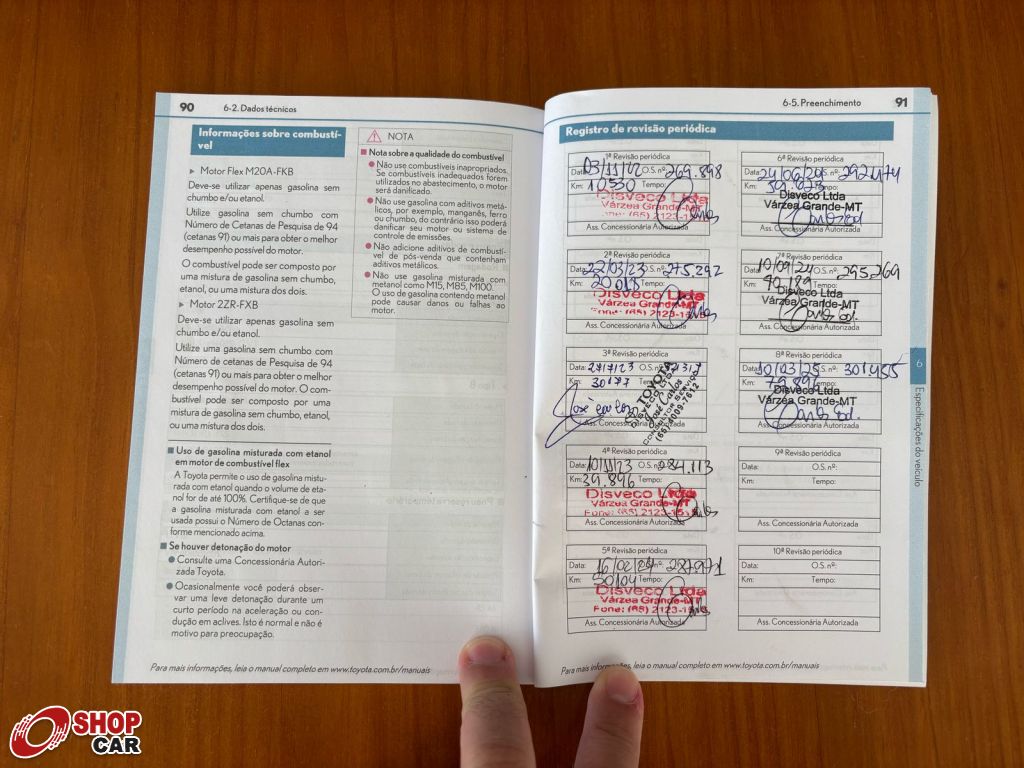 90 6-2. Dados técnicos
Informações sobre combustí-
vel
▶ Motor Flex M20A-FKB
Deve-se utilizar apenas gasolina sem
chumbo e/ou etanol.
Utilize gasolina sem chumbo com
Número de Cetanas de Pesquisa de 94
(cetanas 91) ou mais para obter o melhor
desempenho possível do motor.
O combustível pode ser composto por
uma mistura de gasolina sem chumbo,
etanol, ou uma mistura dos dois.
▶ Motor 2ZR-FXB
Deve-se utilizar apenas gasolina sem
chumbo e/ou etanol.
Utilize uma gasolina sem chumbo com
Número de cetanas de Pesquisa de 94
(cetanas 91) ou mais para obter o melhor
desempenho possível do motor. O com-
bustível pode ser composto por uma
mistura de gasolina sem chumbo, etanol,
ou uma mistura dos dois.
■ Uso de gasolina misturada com etanol
em motor de combustível flex
A Toyota permite o uso de gasolina mistu-
rada com etanol quando o volume de eta-
nol for de até 100%. Certifique-se de que
a gasolina misturada com etanol a ser
usada possui o Número de Octanas con-
forme mencionado acima.
■ Se houver detonação do motor
● Consulte uma Concessionária Autori-
zada Toyota.
● Ocasionalmente você poderá obser-
var uma leve detonação durante um
curto período na aceleração ou con-
dução em aclives. Isto é normal e não é
motivo para preocupação.
NOTA
■ Nota sobre a qualidade do combustível
● Não use combustíveis inapropriados.
Se combustíveis inadequados forem
utilizados no abastecimento, o motor
será danificado.
● Não use gasolina com aditivos metá-
licos, por exemplo, manganês, ferro
ou chumbo, do contrário isso poderá
danificar seu motor ou sistema de
controle de emissões.
● Não adicione aditivos de combustí-
vel de pós-venda que contenham
aditivos metálicos.
● Não use gasolina misturada com
metanol como M15, M85, M100.
O uso de gasolina contendo metanol
pode causar danos ou falhas ao
motor.
Para mais informações, leia o manual completo em www.toyota.com.br/manuais
6-5. Preenchimento 91
Registro de revisão periódica
1ª Revisão periódica
Data: 03/11/22 O.S. nº: 269.898
Km: 10530 Tempo:
Disveco Ltda
Várzea Grande-MT
Ass. Concessionária Autorizada
2ª Revisão periódica
Data: 22/03/23 O.S. nº: 275.292
Km: 20018 Tempo:
Disveco Ltda
Várzea Grande-MT
Fone: (65) 2123-15
Ass. Concessionária Autorizada
3ª Revisão periódica
Data: O.S. nº:
Km: 30177 Tempo:
TOYOTA
DISVECO LTDA
José Carlos
Ass. Concessionária
4ª Revisão periódica
Data: 10/11/23 O.S. nº: 284.113
Km: 39.896 Tempo:
Disveco Ltda
Várzea Grande-MT
Fone: (65) 2123-15
Ass. Concessionária Autorizada
5ª Revisão periódica
Data: 16/02/24 O.S. nº: 287.971
Km: 50104 Tempo:
Disveco Ltda
Várzea Grande-MT
Fone: (65) 2123-15
Ass. Concessionária Autorizada
6ª Revisão periódica
Data: O.S. nº:
Km: Tempo:
Disveco Ltda
Várzea Grande-MT
Ass. Concessionária Autorizada
7ª Revisão periódica
Data: 10/09/24 O.S. nº: 295.269
Km: Tempo:
Disveco Ltda
Várzea Grande-MT
Ass. Concessionária Autorizada
8ª Revisão periódica
Data: O.S. nº: 301.455
Km: 79.897 Tempo:
Disveco Ltda
Várzea Grande-MT
Ass. Concessionária Autorizada
9ª Revisão periódica
Data: O.S. nº:
Km: Tempo:
Ass. Concessionária Autorizada
10ª Revisão periódica
Data: O.S. nº:
Km: Tempo:
Ass. Concessionária Autorizada
6
Especificações do veículo
Para mais informações, leia o manual completo em www.toyota.com.br/manuais
SHOP
CAR